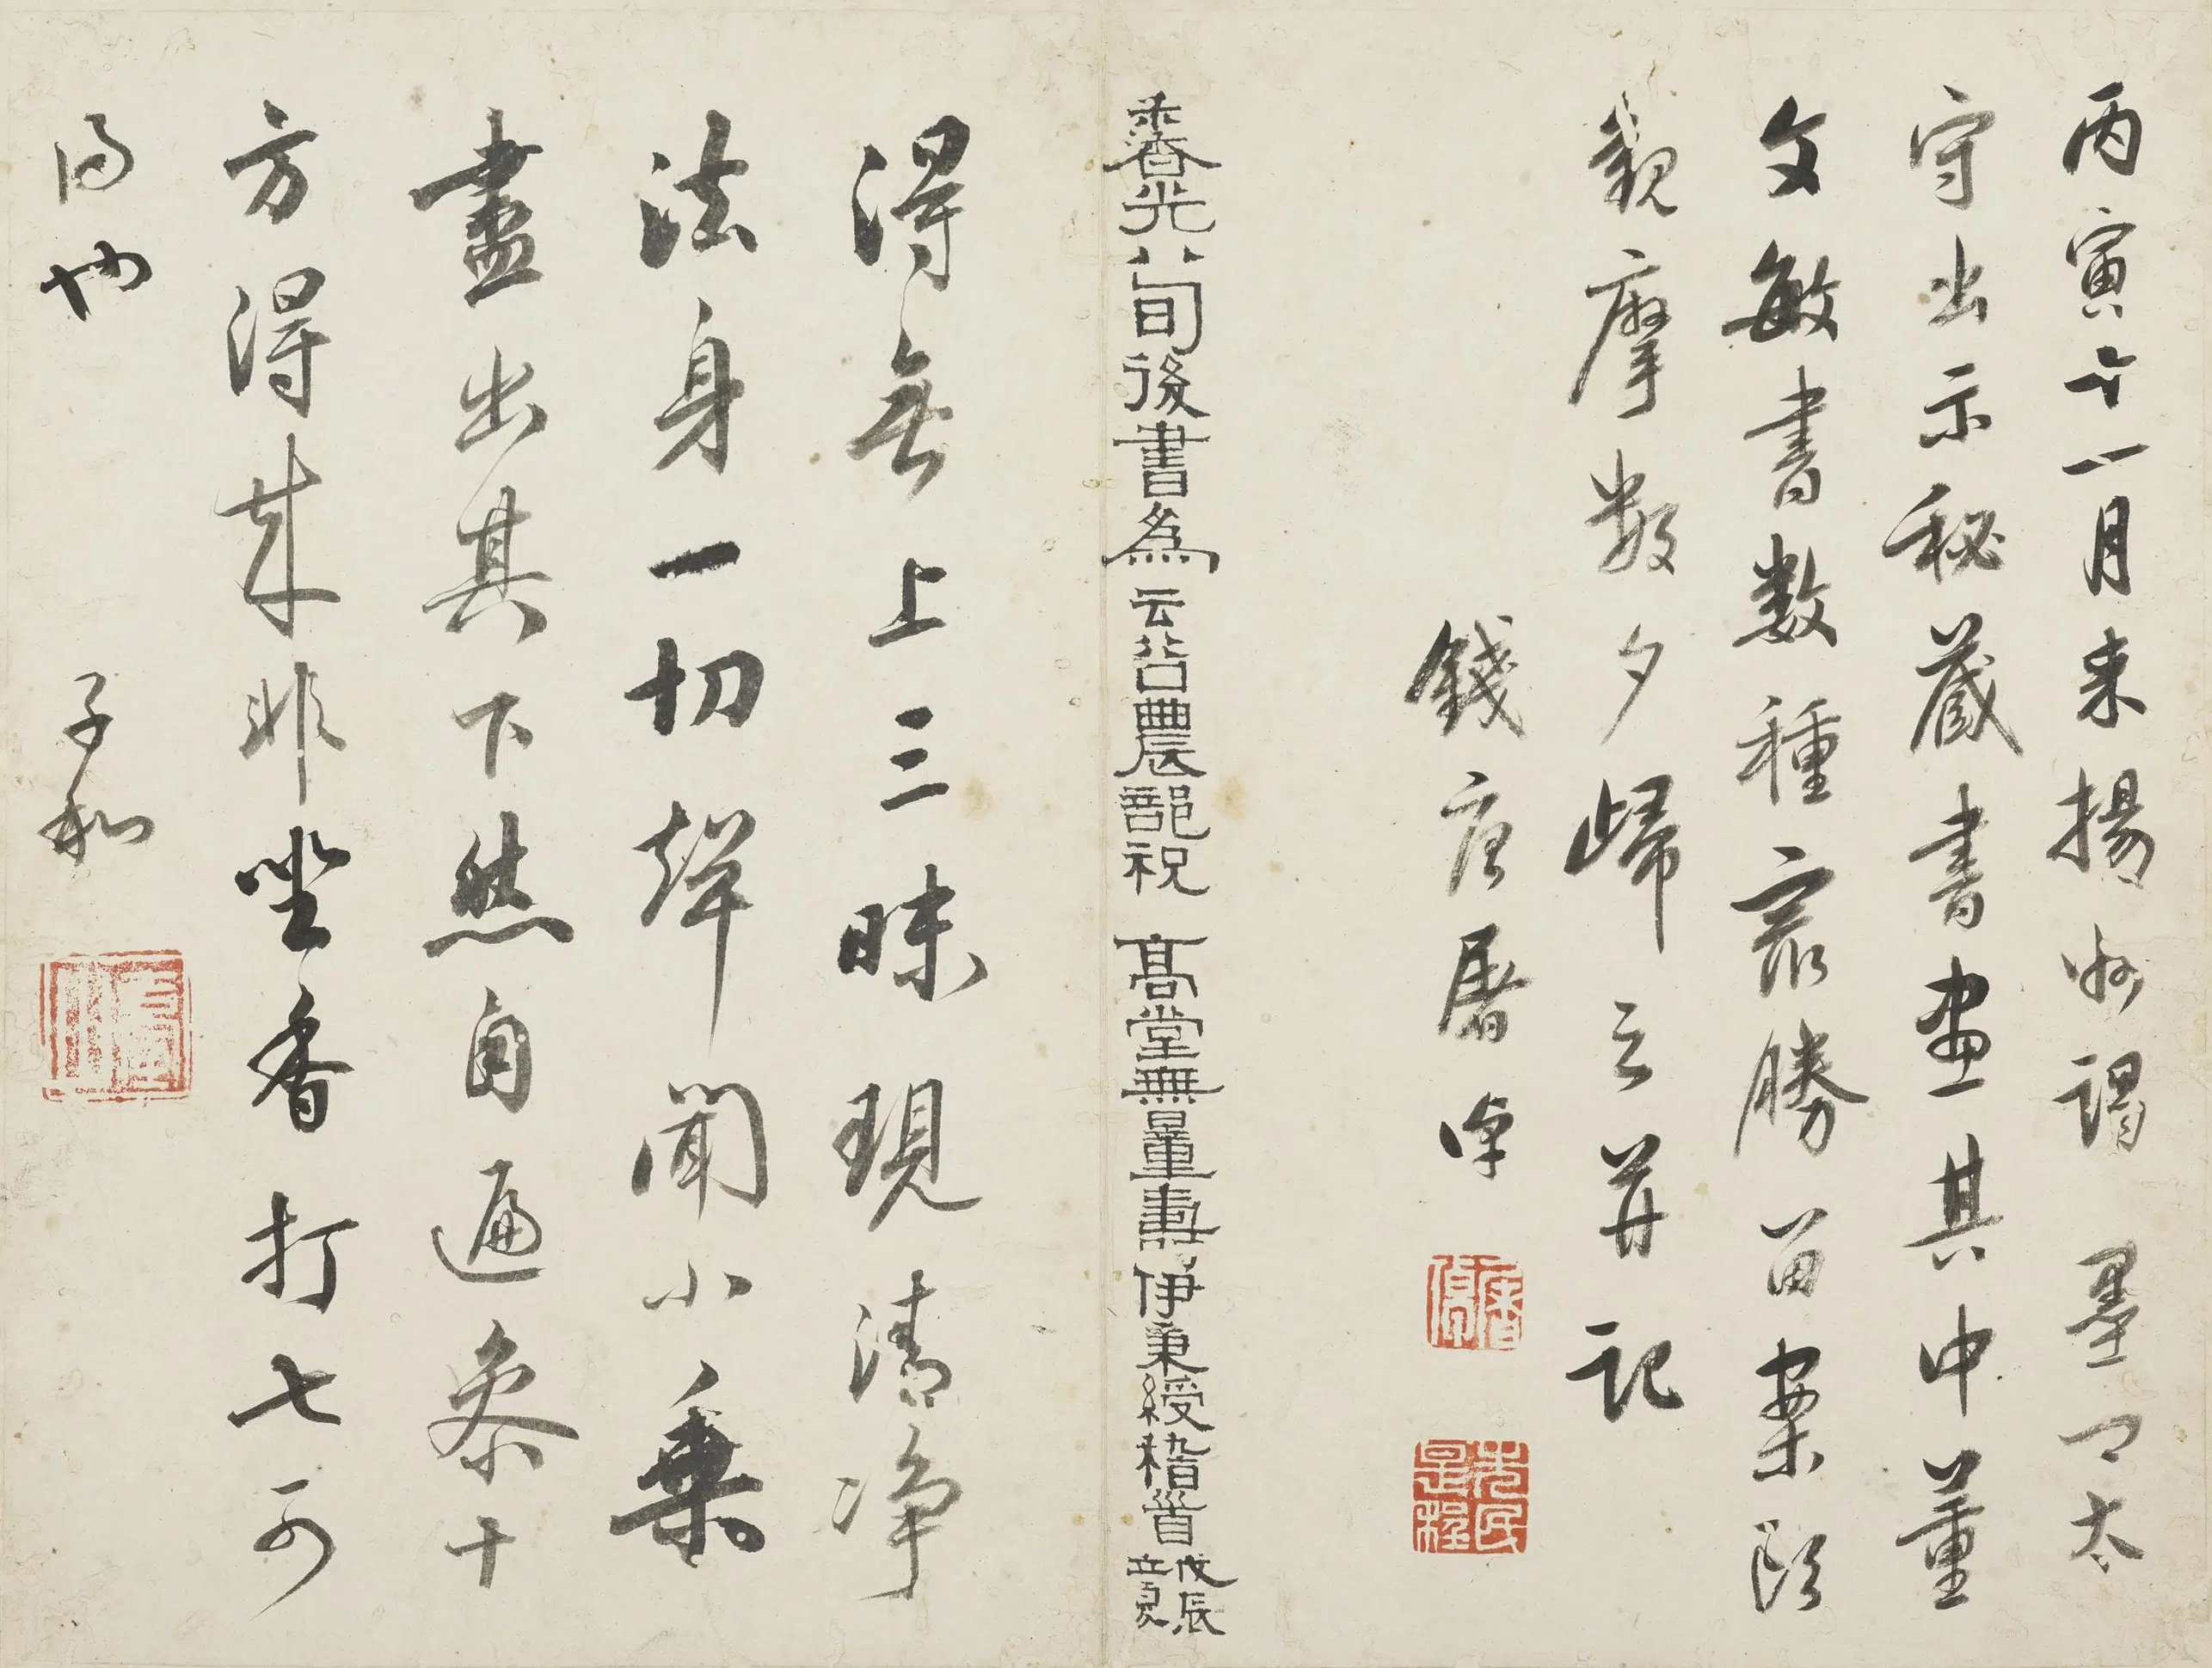 丙寅十一月来揚州謁墨卿太
守出示秘藏書畫其中董
文敏書數種最勝留案頭
觀摩數夕歸之并記
錢唐屠倬
香光八旬後書為云谷農部祝高堂無量壽伊秉綬稽首戊辰立夏
得無上三昧現清淨
法身一切聲聞小乘
盡出其下然自遍參十
方得来非坐香打七可
得也 子和